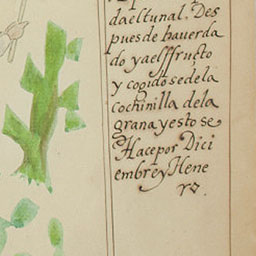 da el tunal. Des
pues de hauer da
do ya el ffructo
y cogido se de la
cochinilla de la
grana y esto se
Hace por Dici
embre y Hene
ro.